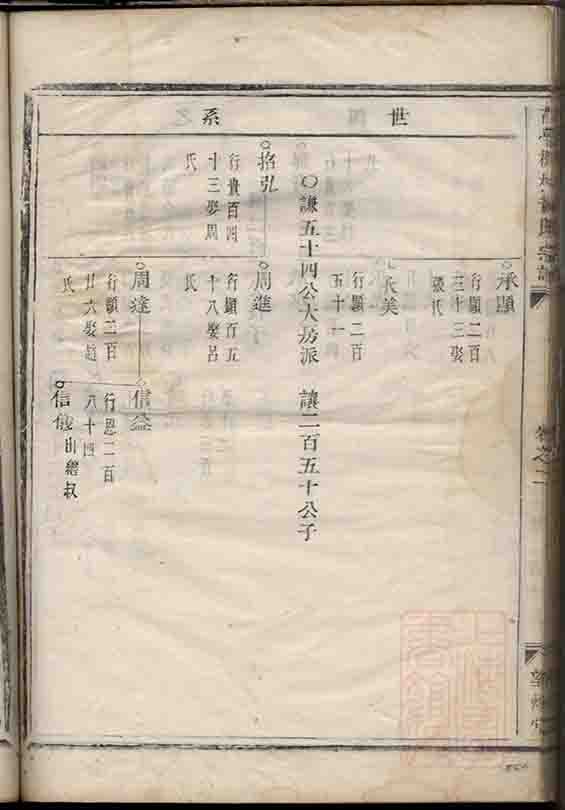 世系
承顯
行顯二百
三十三娶
張氏
承美
行顯二百
五十一
謙五十四公大房派 讓二百五十公子
招弘
行貴百四
十三娶周
氏
周進
行顯百五
十八娶呂
氏
周達
行顯二百
廿六娶趙
氏
信益
行恩二百
八十四
信儀出繼叔